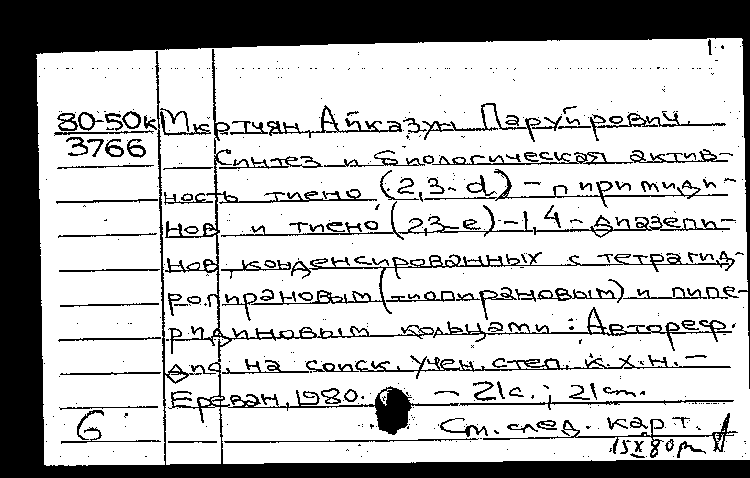 1.
80-50к Мкртчян, Айказун Паруйрович.
3766 Синтез и биологическая актив-
ность тиено (2,3-d)-пиримиди-
нов и тиено (2,3-e)-1,4-диазепи-
нов, конденсированных с тетрагид-
ропирановым (-тиопирановым) и пипе-
ридиновым кольцами: Автореф.
дис. на соиск. учен. степ. к.х.н. -
Ереван, 1980. - 21с.; 21см.
6 См. след. карт.
15X80